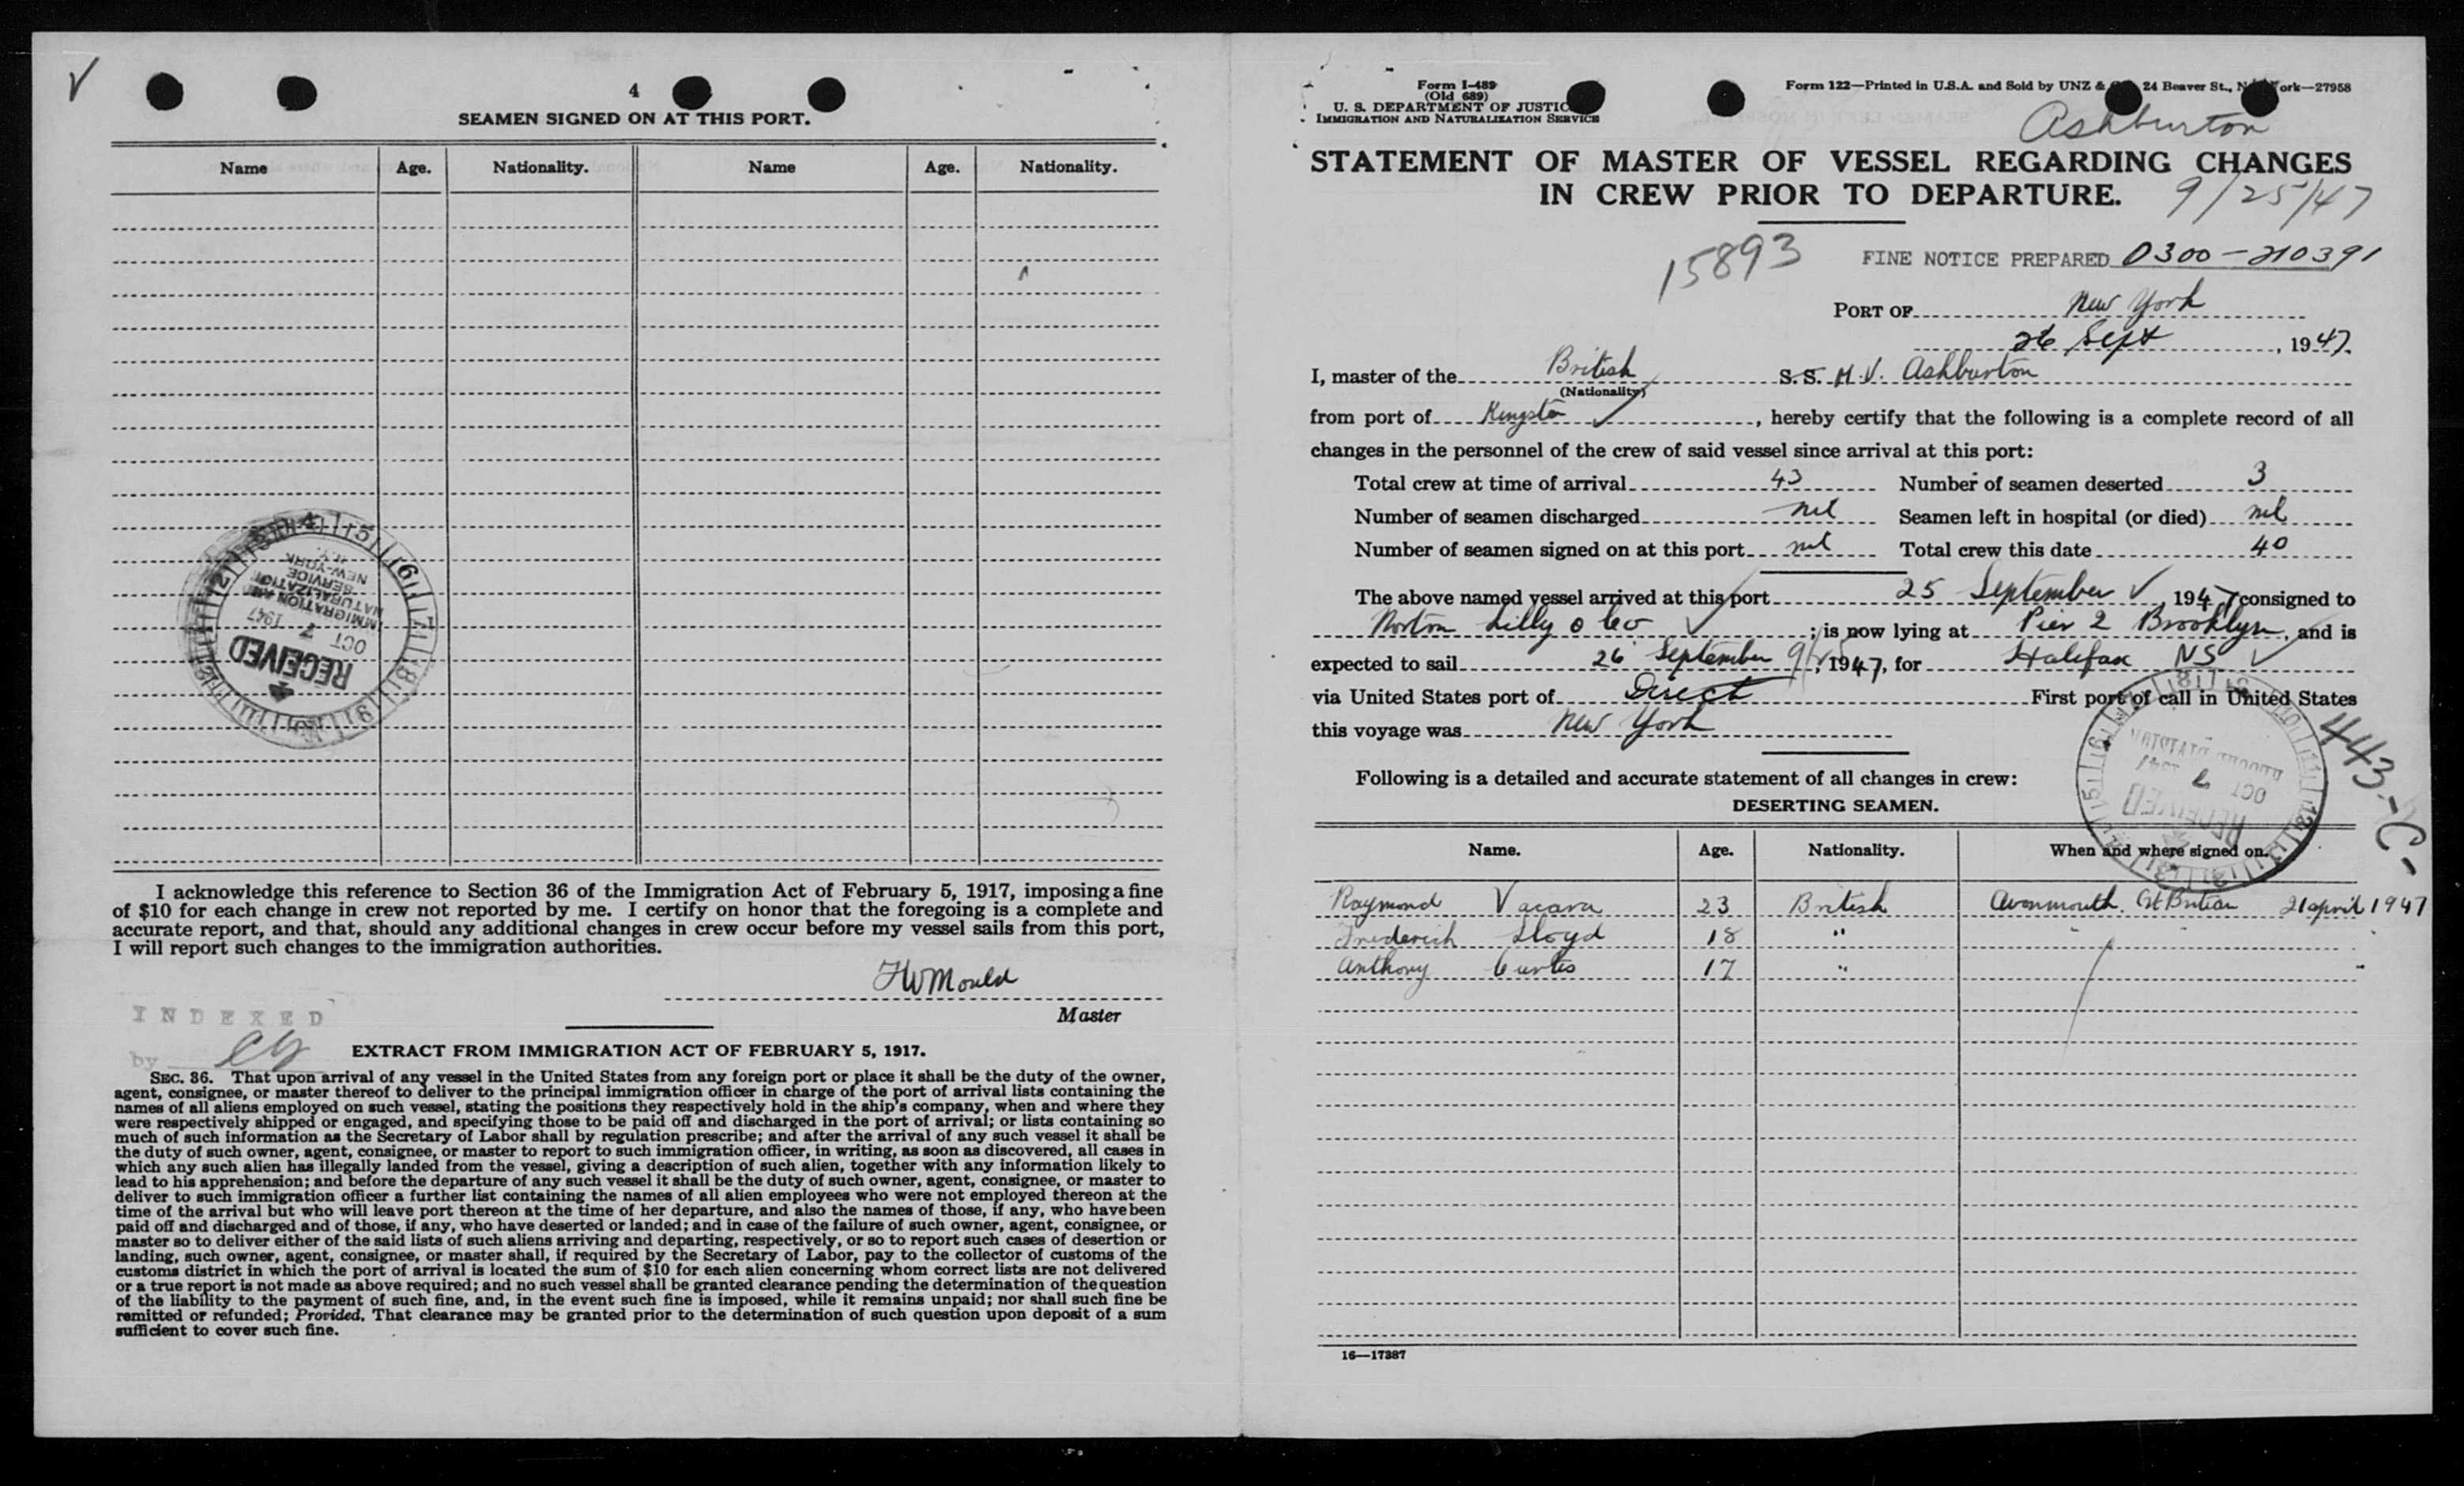 4
SEAMEN SIGNED ON AT THIS PORT.
Name Age. Nationality. Name Age. Nationality.
RECEIVED
OCT 7 1947
IMMIGRATION AND
NATURALIZATION
SERVICE
NEW-YORK
N.Y.
I acknowledge this reference to Section 36 of the Immigration Act of February 5, 1917, imposing a fine
of $10 for each change in crew not reported by me. I certify on honor that the foregoing is a complete and
accurate report, and that, should any additional changes in crew occur before my vessel sails from this port,
I will report such changes to the immigration authorities.
HWMould
Master
INDEXED
by
EXTRACT FROM IMMIGRATION ACT OF FEBRUARY 5, 1917.
SEC. 36. That upon arrival of any vessel in the United States from any foreign port or place it shall be the duty of the owner,
agent, consignee, or master thereof to deliver to the principal immigration officer in charge of the port of arrival lists containing the
names of all aliens employed on such vessel, stating the positions they respectively hold in the ship's company, when and where they
were respectively shipped or engaged, and specifying those to be paid off and discharged in the port of arrival; or lists containing so
much of such information as the Secretary of Labor shall by regulation prescribe; and after the arrival of any such vessel it shall be
the duty of such owner, agent, consignee, or master to report to such immigration officer, in writing, as soon as discovered, all cases in
which any such alien has illegally landed from the vessel, giving a description of such alien, together with any information likely to
lead to his apprehension; and before the departure of any such vessel it shall be the duty of such owner, agent, consignee, or master to
deliver to such immigration officer a further list containing the names of all alien employees who were not employed thereon at the
time of the arrival but who will leave port thereon at the time of her departure, and also the names of those, if any, who have been
paid off and discharged and of those, if any, who have deserted or landed; and in case of the failure of such owner, agent, consignee, or
master so to deliver either of the said lists of such aliens arriving and departing, respectively, or so to report such cases of desertion or
landing, such owner, agent, consignee, or master shall, if required by the Secretary of Labor, pay to the collector of customs of the
customs district in which the port of arrival is located the sum of $10 for each alien concerning whom correct lists are not delivered
or a true report is not made as above required; and no such vessel shall be granted clearance pending the determination of the question
of the liability to the payment of such fine, and, in the event such fine is imposed, while it remains unpaid; nor shall such fine be
remitted or refunded; Provided, That clearance may be granted prior to the determination of such question upon deposit of a sum
sufficient to cover such fine.
Form I-489
(Old 689)
U. S. DEPARTMENT OF JUSTIC
IMMIGRATION AND NATURALIZATION SERVICE
Form 122—Printed in U.S.A. and Sold by UNZ & 24 Beaver St., N ork—27958
Ashburton
STATEMENT OF MASTER OF VESSEL REGARDING CHANGES
IN CREW PRIOR TO DEPARTURE.
9/25/47
15893
FINE NOTICE PREPARED 0300-210391
PORT OF New York
26 Sept, 1947.
I, master of the British S.S. M.V. Ashburton
(Nationality)
from port of Kingston, hereby certify that the following is a complete record of all
changes in the personnel of the crew of said vessel since arrival at this port:
Total crew at time of arrival 43 Number of seamen deserted 3
Number of seamen discharged nil Seamen left in hospital (or died) nil
Number of seamen signed on at this port nil Total crew this date 40
The above named vessel arrived at this port 25 September 1947 consigned to
Norton Lilly & Co; is now lying at Pier 2 Brooklyn, and is
expected to sail 26 September, 1947, for Halifax NS
via United States port of Direct First port of call in United States
this voyage was New York
443-C-
RECEIVED
OCT 7 1947
RECORD DIVISION
Following is a detailed and accurate statement of all changes in crew:
DESERTING SEAMEN.
Name. Age. Nationality. When and where signed on.
Raymond Vacara 23 British Avonmouth. Gt Britian 21 april 1947
Frederick Lloyd 18 " " " "
Anthony Curtis 17 " "
16—17387